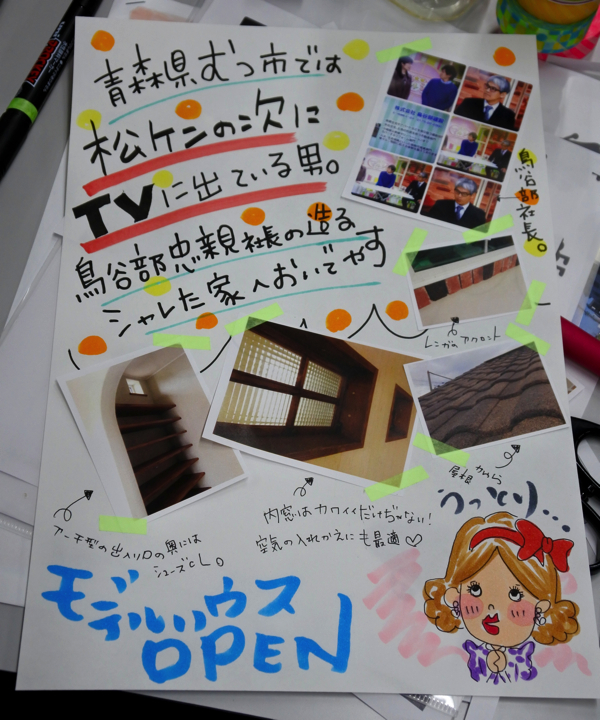 青森県むつ市では
松ケンの次に
TVに出ている男。
鳥谷部忠親社長の造る
シャレた家へおいでやす
鳥谷部社長。
レンガのアクセント
屋根だから
うっとり...
アーチ型の出入り口の奥には
シューズCL。
内窓はカワイイだけぢゃない!
空気の入れかえにも最適♡
モデルハウス
OPEN